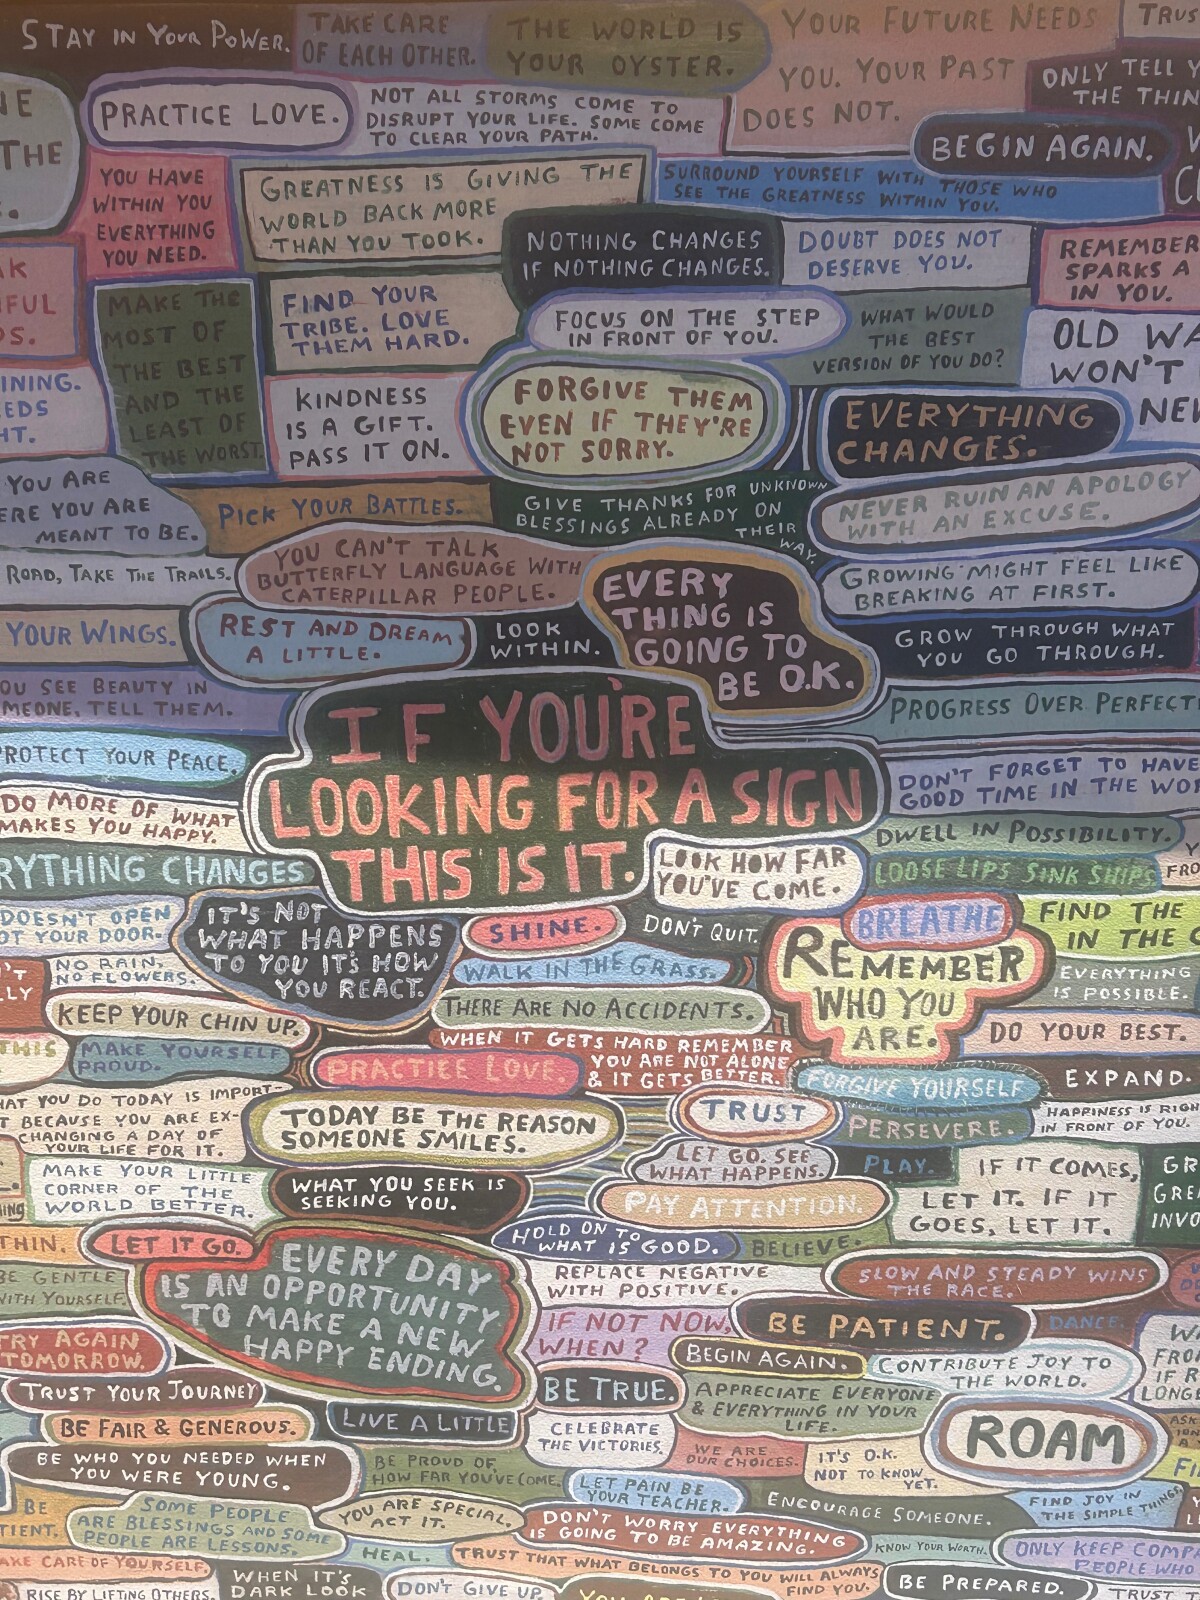 STAY IN YOUR POWER.
TAKE CARE
OF EACH OTHER.
THE WORLD IS
YOUR OYSTER.
YOUR FUTURE NEEDS
YOU. YOUR PAST
DOES NOT.
ONLY TELL
THE THIN
THE
PRACTICE LOVE.
NOT ALL STORMS COME TO
DISRUPT YOUR LIFE. SOME COME
TO CLEAR YOUR PATH.
BEGIN AGAIN.
YOU HAVE
WITHIN YOU
EVERYTHING
YOU NEED.
GREATNESS IS GIVING THE
WORLD BACK MORE
THAN YOU TOOK.
SURROUND YOURSELF WITH THOSE WHO
SEE THE GREATNESS WITHIN YOU.
NOTHING CHANGES
IF NOTHING CHANGES.
DOUBT DOES NOT
DESERVE YOU.
REMEMBER
SPARKS A
IN YOU.
MAKE THE
MOST OF
THE BEST
AND THE
LEAST OF
THE WORST.
FIND YOUR
TRIBE. LOVE
THEM HARD.
FOCUS ON THE STEP
IN FRONT OF YOU.
WHAT WOULD
THE BEST
VERSION OF YOU DO?
OLD WA
WON'T
NE
KINDNESS
IS A GIFT.
PASS IT ON.
FORGIVE THEM
EVEN IF THEY'RE
NOT SORRY.
EVERYTHING
CHANGES.
YOU ARE
ERE YOU ARE
MEANT TO BE.
PICK YOUR BATTLES.
GIVE THANKS FOR UNKNOWN
BLESSINGS ALREADY ON
THEIR
WAY.
NEVER RUIN AN APOLOGY
WITH AN EXCUSE.
ROAD, TAKE THE TRAILS.
YOU CAN'T TALK
BUTTERFLY LANGUAGE WITH
CATERPILLAR PEOPLE.
EVERY
THING IS
GOING TO
BE O.K.
GROWING MIGHT FEEL LIKE
BREAKING AT FIRST.
YOUR WINGS.
REST AND DREAM
A LITTLE.
LOOK
WITHIN.
GROW THROUGH WHAT
YOU GO THROUGH.
OU SEE BEAUTY IN
MEONE, TELL THEM.
PROGRESS OVER PERFECTI
IF YOU'RE
LOOKING FOR A SIGN
THIS IS IT.
ROTECT YOUR PEACE.
DON'T FORGET TO HAVE
GOOD TIME IN THE WOR
DO MORE OF WHAT
MAKES YOU HAPPY.
DWELL IN POSSIBILITY.
RYTHING CHANGES
LOOK HOW FAR
YOU'VE COME.
LOOSE LIPS SINK SHIPS
FRO
DOESN'T OPEN
OT YOUR DOOR.
IT'S NOT
WHAT HAPPENS
TO YOU IT'S HOW
YOU REACT.
SHINE.
DON'T QUIT.
BREATHE
FIND THE
IN THE
NO RAIN,
NO FLOWERS.
WALK IN THE GRASS.
REMEMBER
WHO YOU
ARE.
EVERYTHING
IS POSSIBLE.
KEEP YOUR CHIN UP.
THERE ARE NO ACCIDENTS.
DO YOUR BEST.
THIS
MAKE YOURSELF
PROUD.
PRACTICE LOVE.
WHEN IT GETS HARD REMEMBER
YOU ARE NOT ALONE
& IT GETS BETTER.
FORGIVE YOURSELF
EXPAND.
HAT YOU DO TODAY IS IMPORT-
T BECAUSE YOU ARE EX-
CHANGING A DAY OF
YOUR LIFE FOR IT.
TODAY BE THE REASON
SOMEONE SMILES.
TRUST
PERSEVERE.
HAPPINESS IS RIGH
IN FRONT OF YOU.
LET GO. SEE
WHAT HAPPENS.
PLAY.
IF IT COMES,
LET IT. IF IT
GOES, LET IT.
GR
GREA
INVO
MAKE YOUR LITTLE
CORNER OF THE
WORLD BETTER.
WHAT YOU SEEK IS
SEEKING YOU.
PAY ATTENTION.
THIN.
LET IT GO.
HOLD ON TO
WHAT IS GOOD.
BELIEVE.
EVERY DAY
IS AN OPPORTUNITY
TO MAKE A NEW
HAPPY ENDING.
BE GENTLE
WITH YOURSELF.
REPLACE NEGATIVE
WITH POSITIVE.
SLOW AND STEADY WINS
THE RACE.
TRY AGAIN
TOMORROW.
IF NOT NOW,
WHEN?
BE PATIENT.
DANCE.
BEGIN AGAIN.
CONTRIBUTE JOY TO
THE WORLD.
WA
FRO
IF R
LONG
TRUST YOUR JOURNEY
BE TRUE.
APPRECIATE EVERYONE
& EVERYTHING IN YOUR
LIFE.
BE FAIR & GENEROUS.
LIVE A LITTLE
CELEBRATE
THE VICTORIES.
ROAM
BE WHO YOU NEEDED WHEN
YOU WERE YOUNG.
BE PROUD OF
HOW FAR YOU'VE COME.
WE ARE
OUR CHOICES.
IT'S O.K.
NOT TO KNOW
YET.
LET PAIN BE
YOUR TEACHER.
BE
TIENT.
SOME PEOPLE
ARE BLESSINGS AND SOME
PEOPLE ARE LESSONS.
YOU ARE SPECIAL.
ACT IT.
ENCOURAGE SOMEONE.
FIND JOY IN
THE SIMPLE THINGS
DON'T WORRY EVERYTHING
IS GOING TO BE AMAZING.
KNOW YOUR WORTH.
ONLY KEEP COMPA
PEOPLE WHO
AKE CARE OF YOURSELF.
HEAL.
TRUST THAT WHAT BELONGS TO YOU WILL ALWAYS
FIND YOU.
RISE BY LIFTING OTHERS.
WHEN IT'S
DARK LOOK
DON'T GIVE UP.
BE PREPARED.
TRUST T